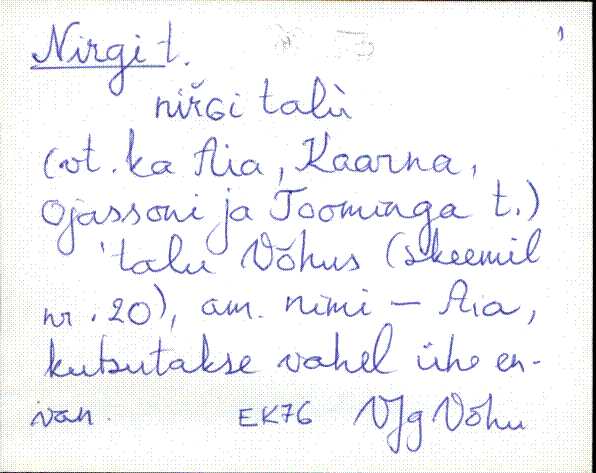 Nirgi t.
nir̆Gi talù
(vt. ka Aia, Kaarna,
Ojassoni ja Toominga t.)
'talu Võhus (skeemil
nr. 20), am. nimi – Aia,
kutsutakse vahel ühe en-
van. EK76 VJg Võhu